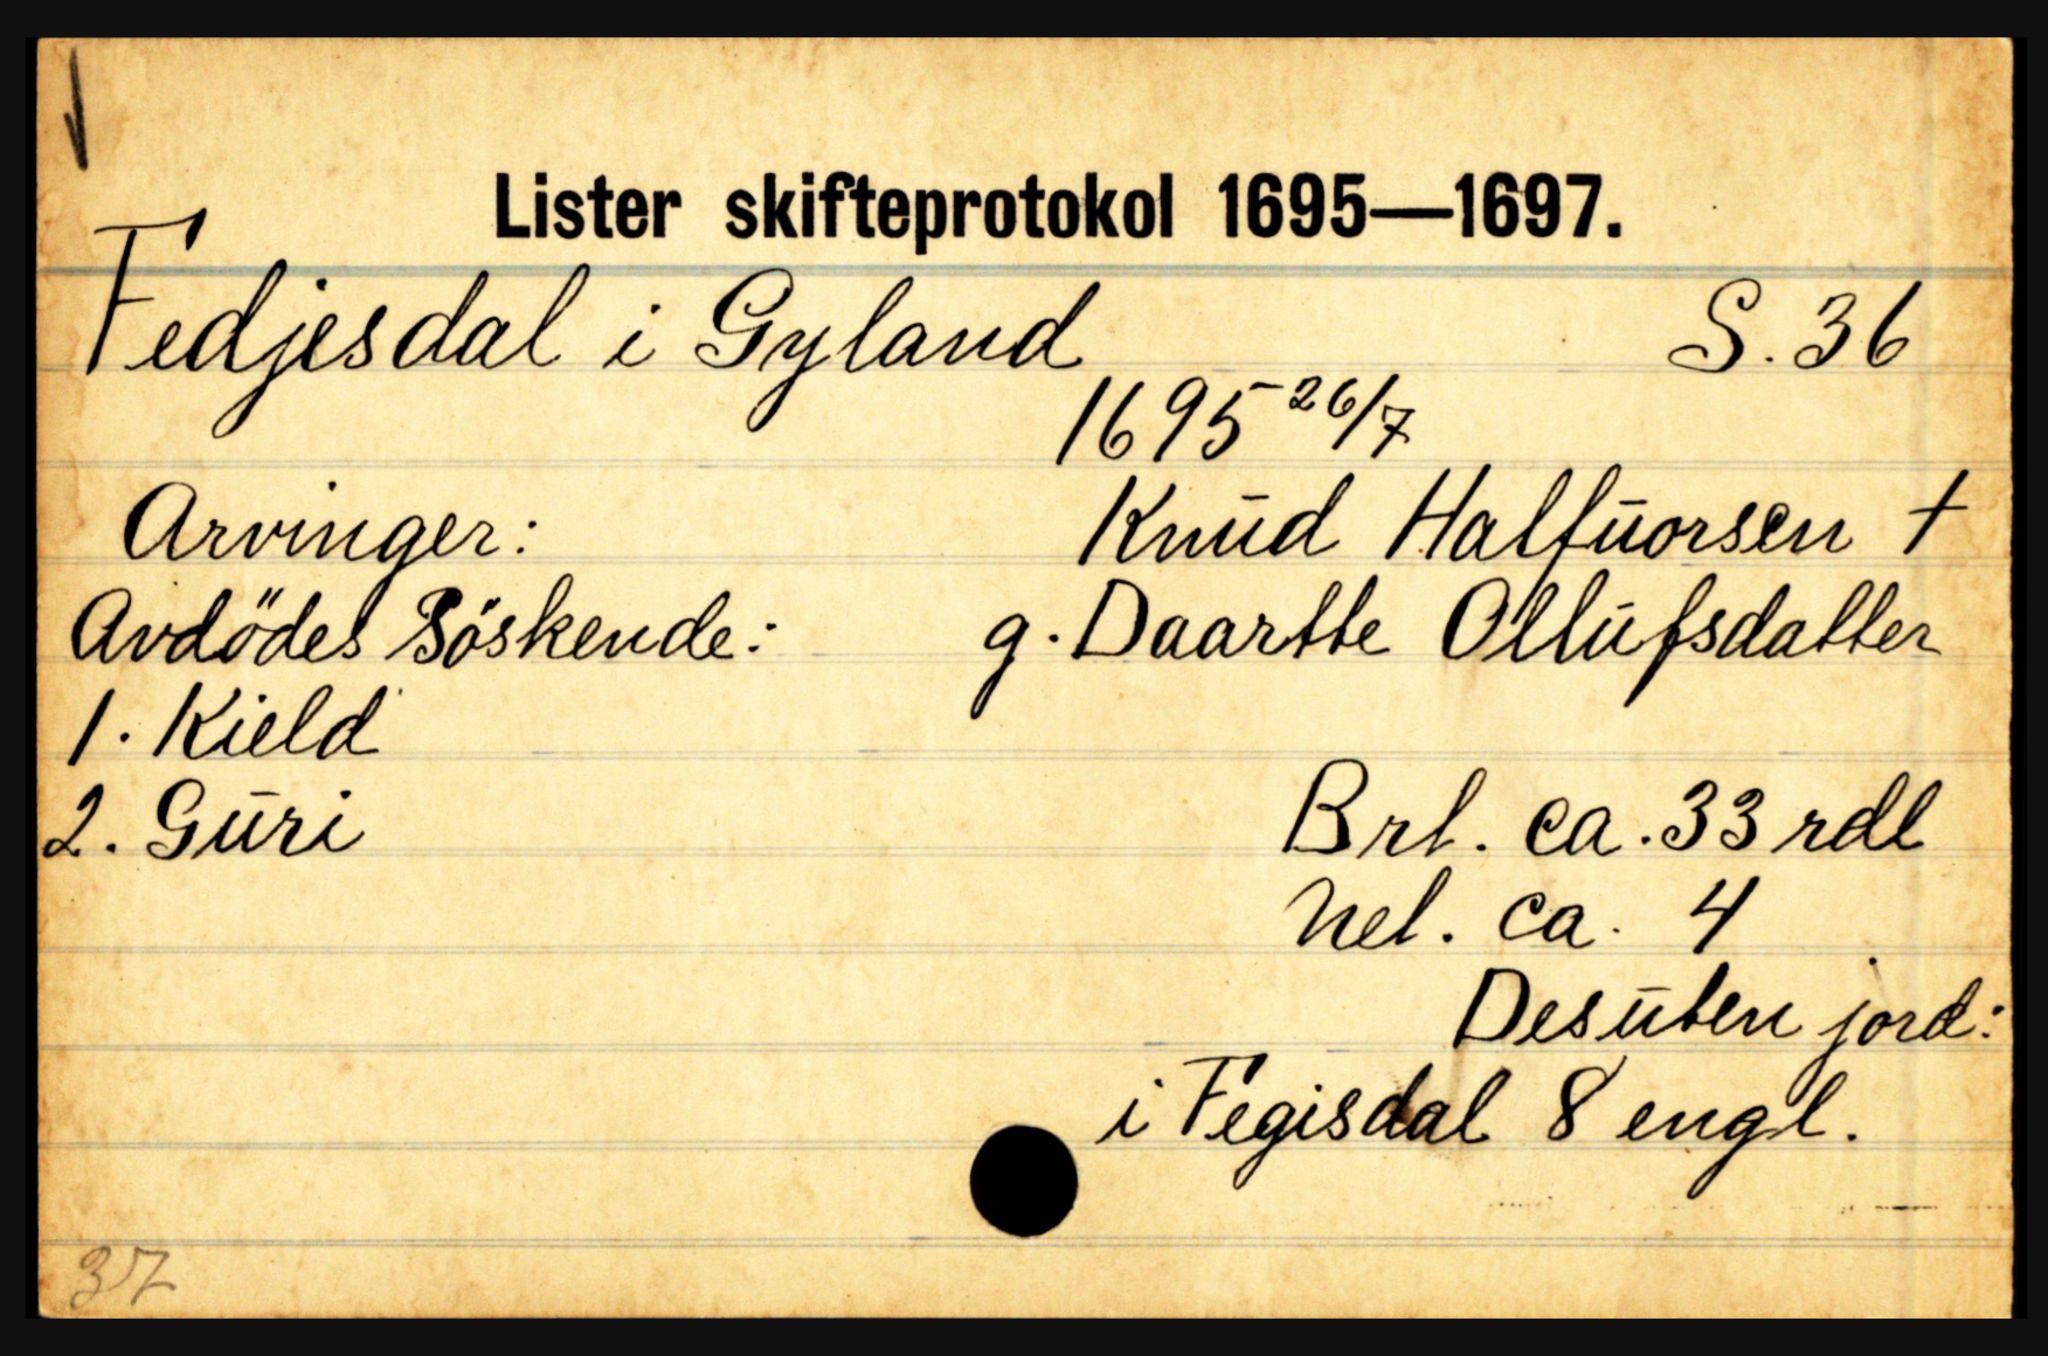 Lister skifteprotokol 1695—1697.
Fedjesdal i Gyland S. 36
1695 26/7
Arvinger: Knud Halfuorsen †
Avdödes Söskende: g. Daartte Ollufsdatter
1. Kield
2. Guri
Brt. ca. 33 rdl
Net. ca. 4
Desuten jord:
i Fegisdal 8 engl.
37